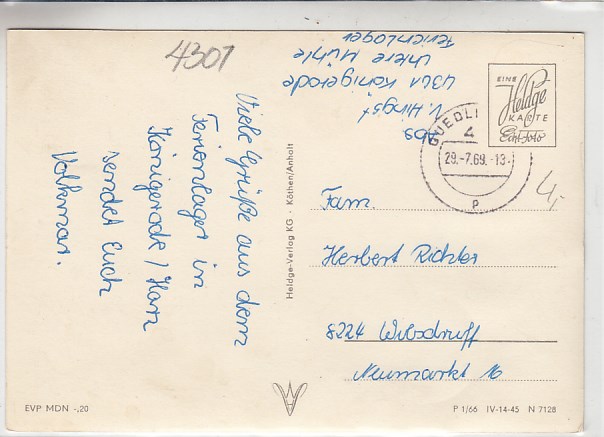 4301
Viele Grüße aus dem
Ferienlager in
Königerode / Harz
sendet Euch
Volkmar.
Abs
V. Hingst
4301 Königerode
Untere Mühle
Ferienlager
EINE
Heldge
KARTE
Echt Foto
QUEDLI
4
29.-7.69.-13
p
4,-
Fam.
Herbert Richter
8224 Wilsdruff
Neumarkt 16
Heldge-Verlag KG · Köthen/Anhalt
EVP MDN -,20
P 1/66 IV-14-45 N 7128